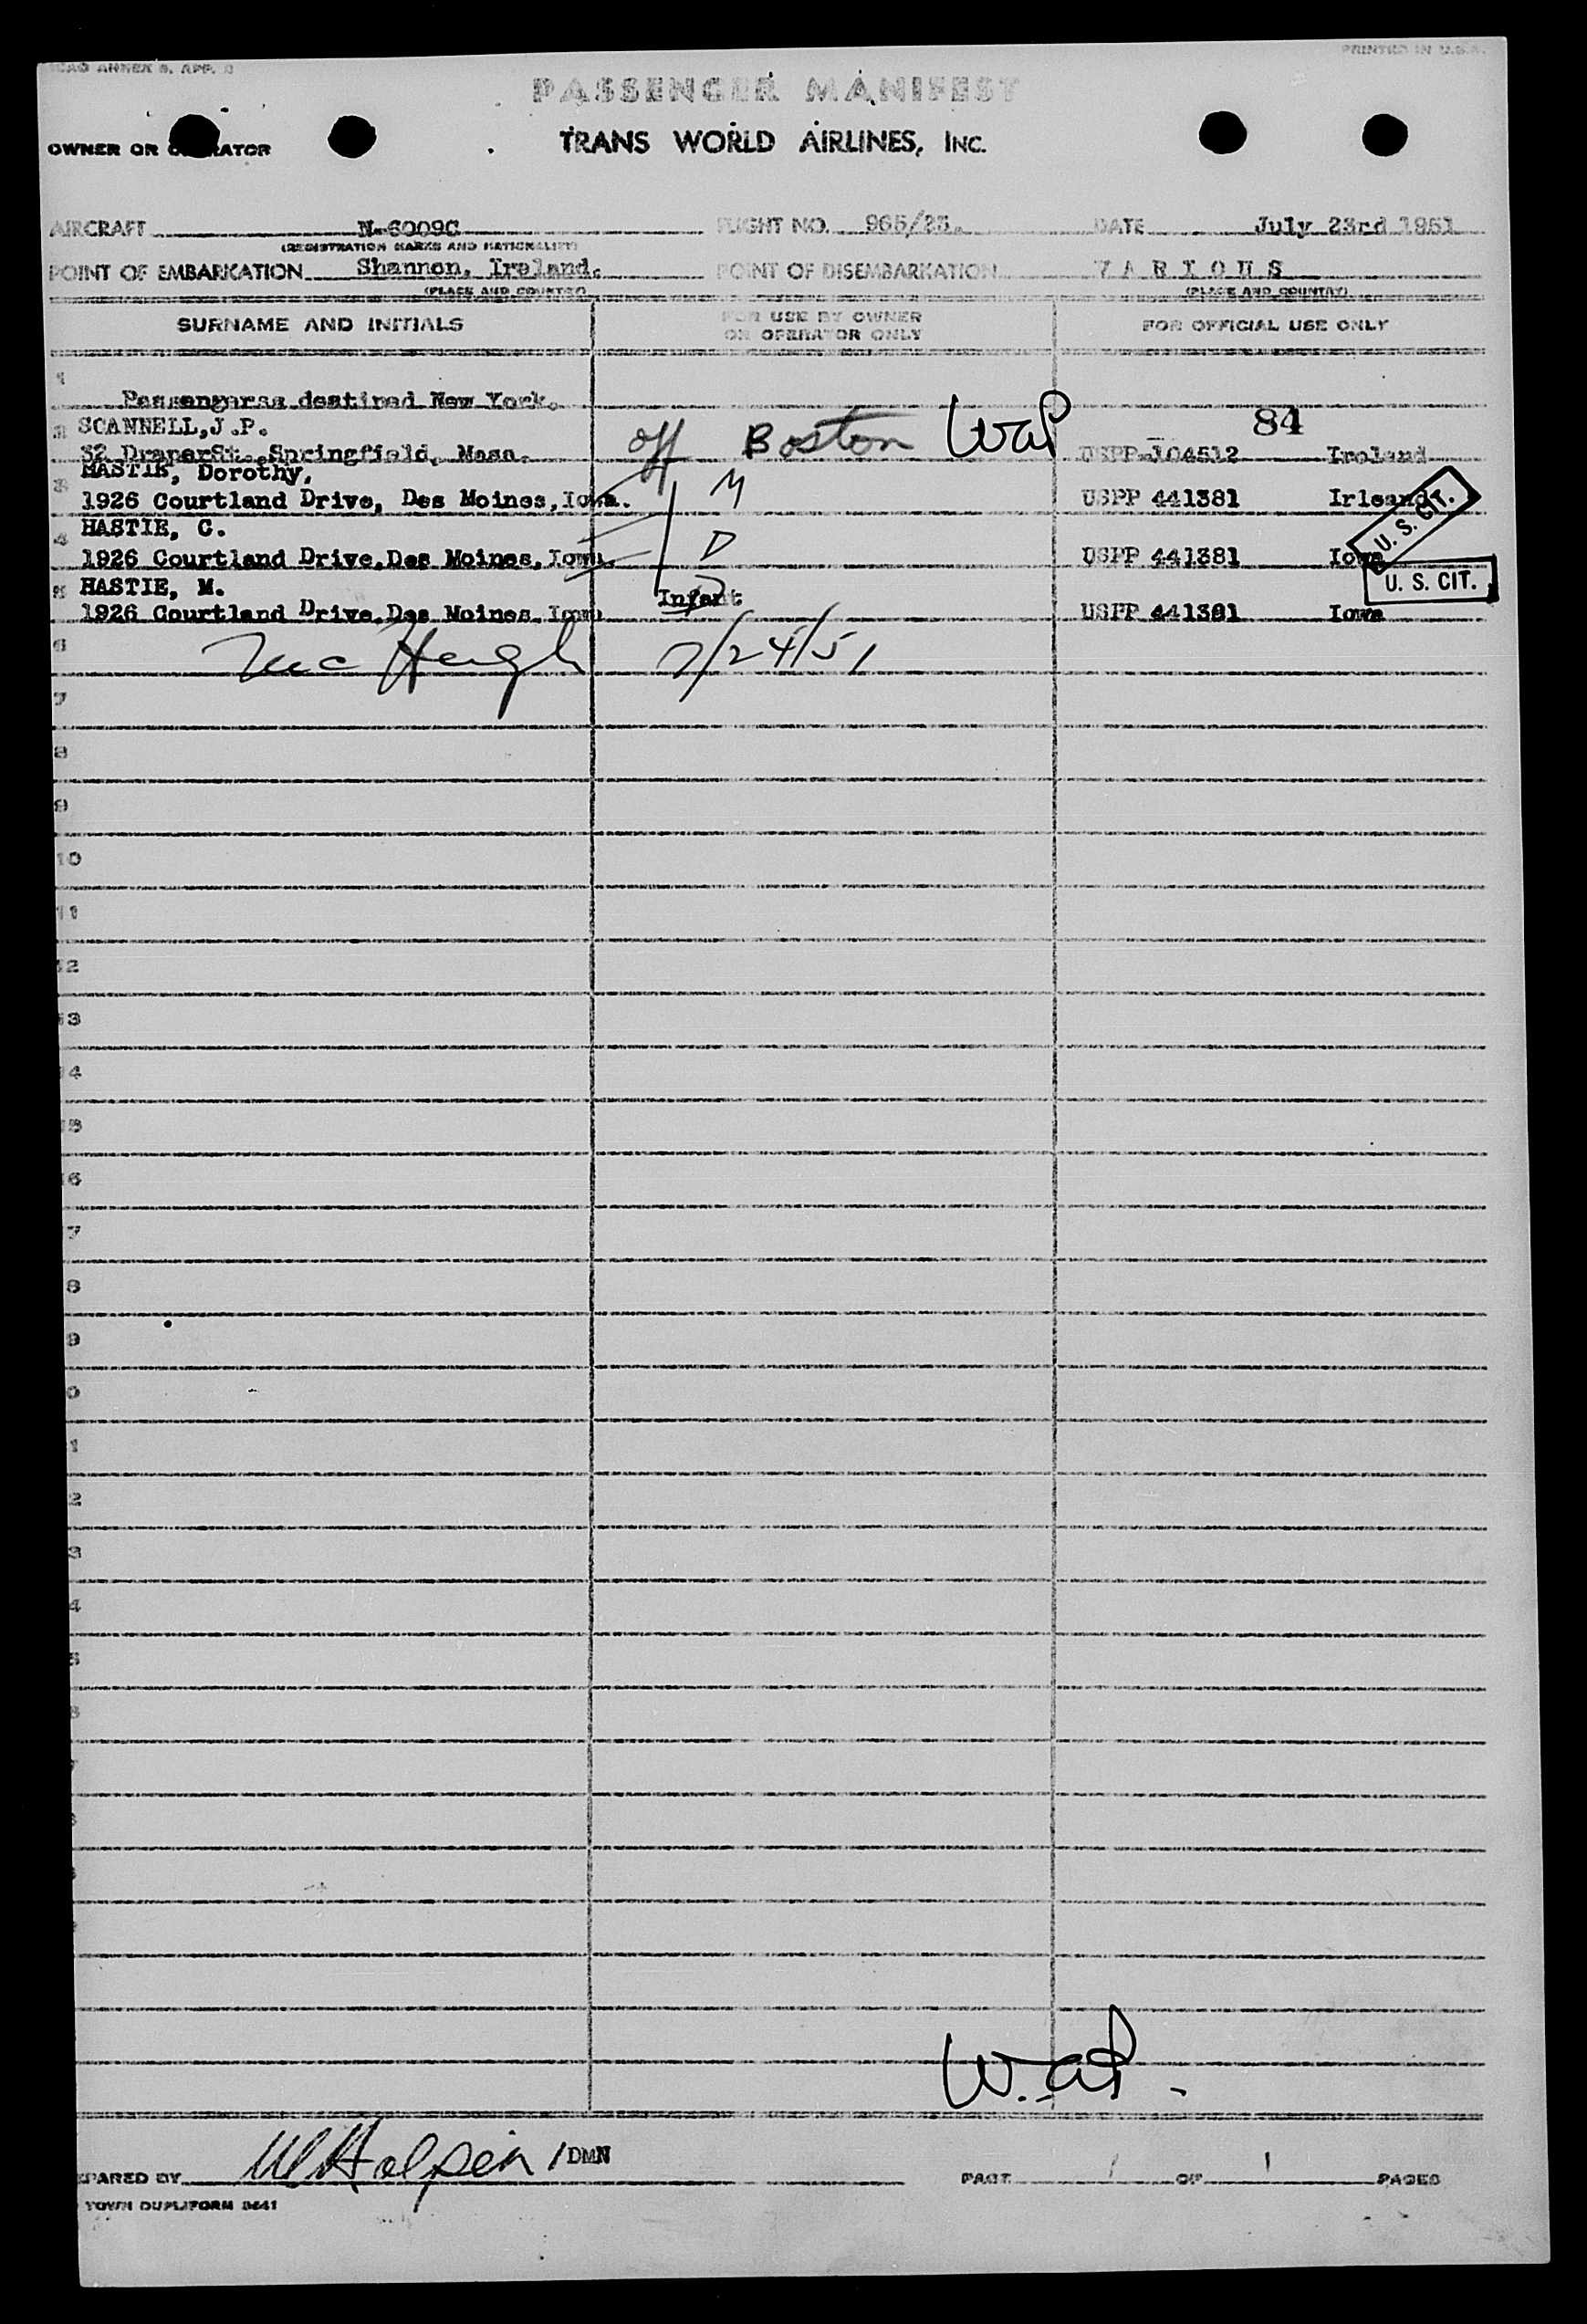 ICAO ANNEX 9, APP. 
PRINTED IN U.S.A.
PASSENGER MANIFEST
OWNER OR OPERATOR TRANS WORLD AIRLINES, INC.
AIRCRAFT N-6009C FLIGHT NO. 965/23. DATE July 23rd 1951
(REGISTRATION MARKS AND NATIONALITY)
POINT OF EMBARKATION Shannon, Ireland. POINT OF DISEMBARKATION VARIOUS
(PLACE AND COUNTRY) (PLACE AND COUNTRY)
SURNAME AND INITIALS FOR USE BY OWNER OR OPERATOR ONLY FOR OFFICIAL USE ONLY
1
Passengerss destined New York.
2 SCANNELL,J.P. off Boston 84
32 DraperSt. Springfield, Mass. USPP-104512 Ireland
3 HASTIE, Dorothy,
1926 Courtland Drive, Des Moines, Iowa. M USPP 441381 Irleand U. S. CIT.
4 HASTIE, C.
1926 Courtland Drive,Des Moines, Iowa. D USPP 441381 Iowa
5 HASTIE, M. U. S. CIT.
1926 Courtland Drive,Des Moines, Iowa Infant USPP 441381 Iowa
6 7/24/51
7
8
9
10
11
12
13
14
15
16
17
18
19
20
1
2
3
4
5
PREPARED BY /DMN PAGE 1 OF 1 PAGES
TOWN DUPLIFORM